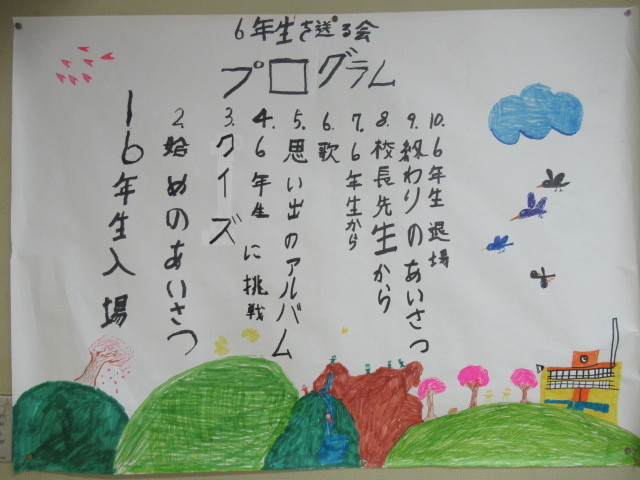 6年生を送る会
プログラム
1 6年生入場
2. 始めのあいさつ
3. クイズ
4. 6年生に挑戦
5. 思い出のアルバム
6. 歌
7. 6年生から
8. 校長先生から
9. 終わりのあいさつ
10. 6年生退場